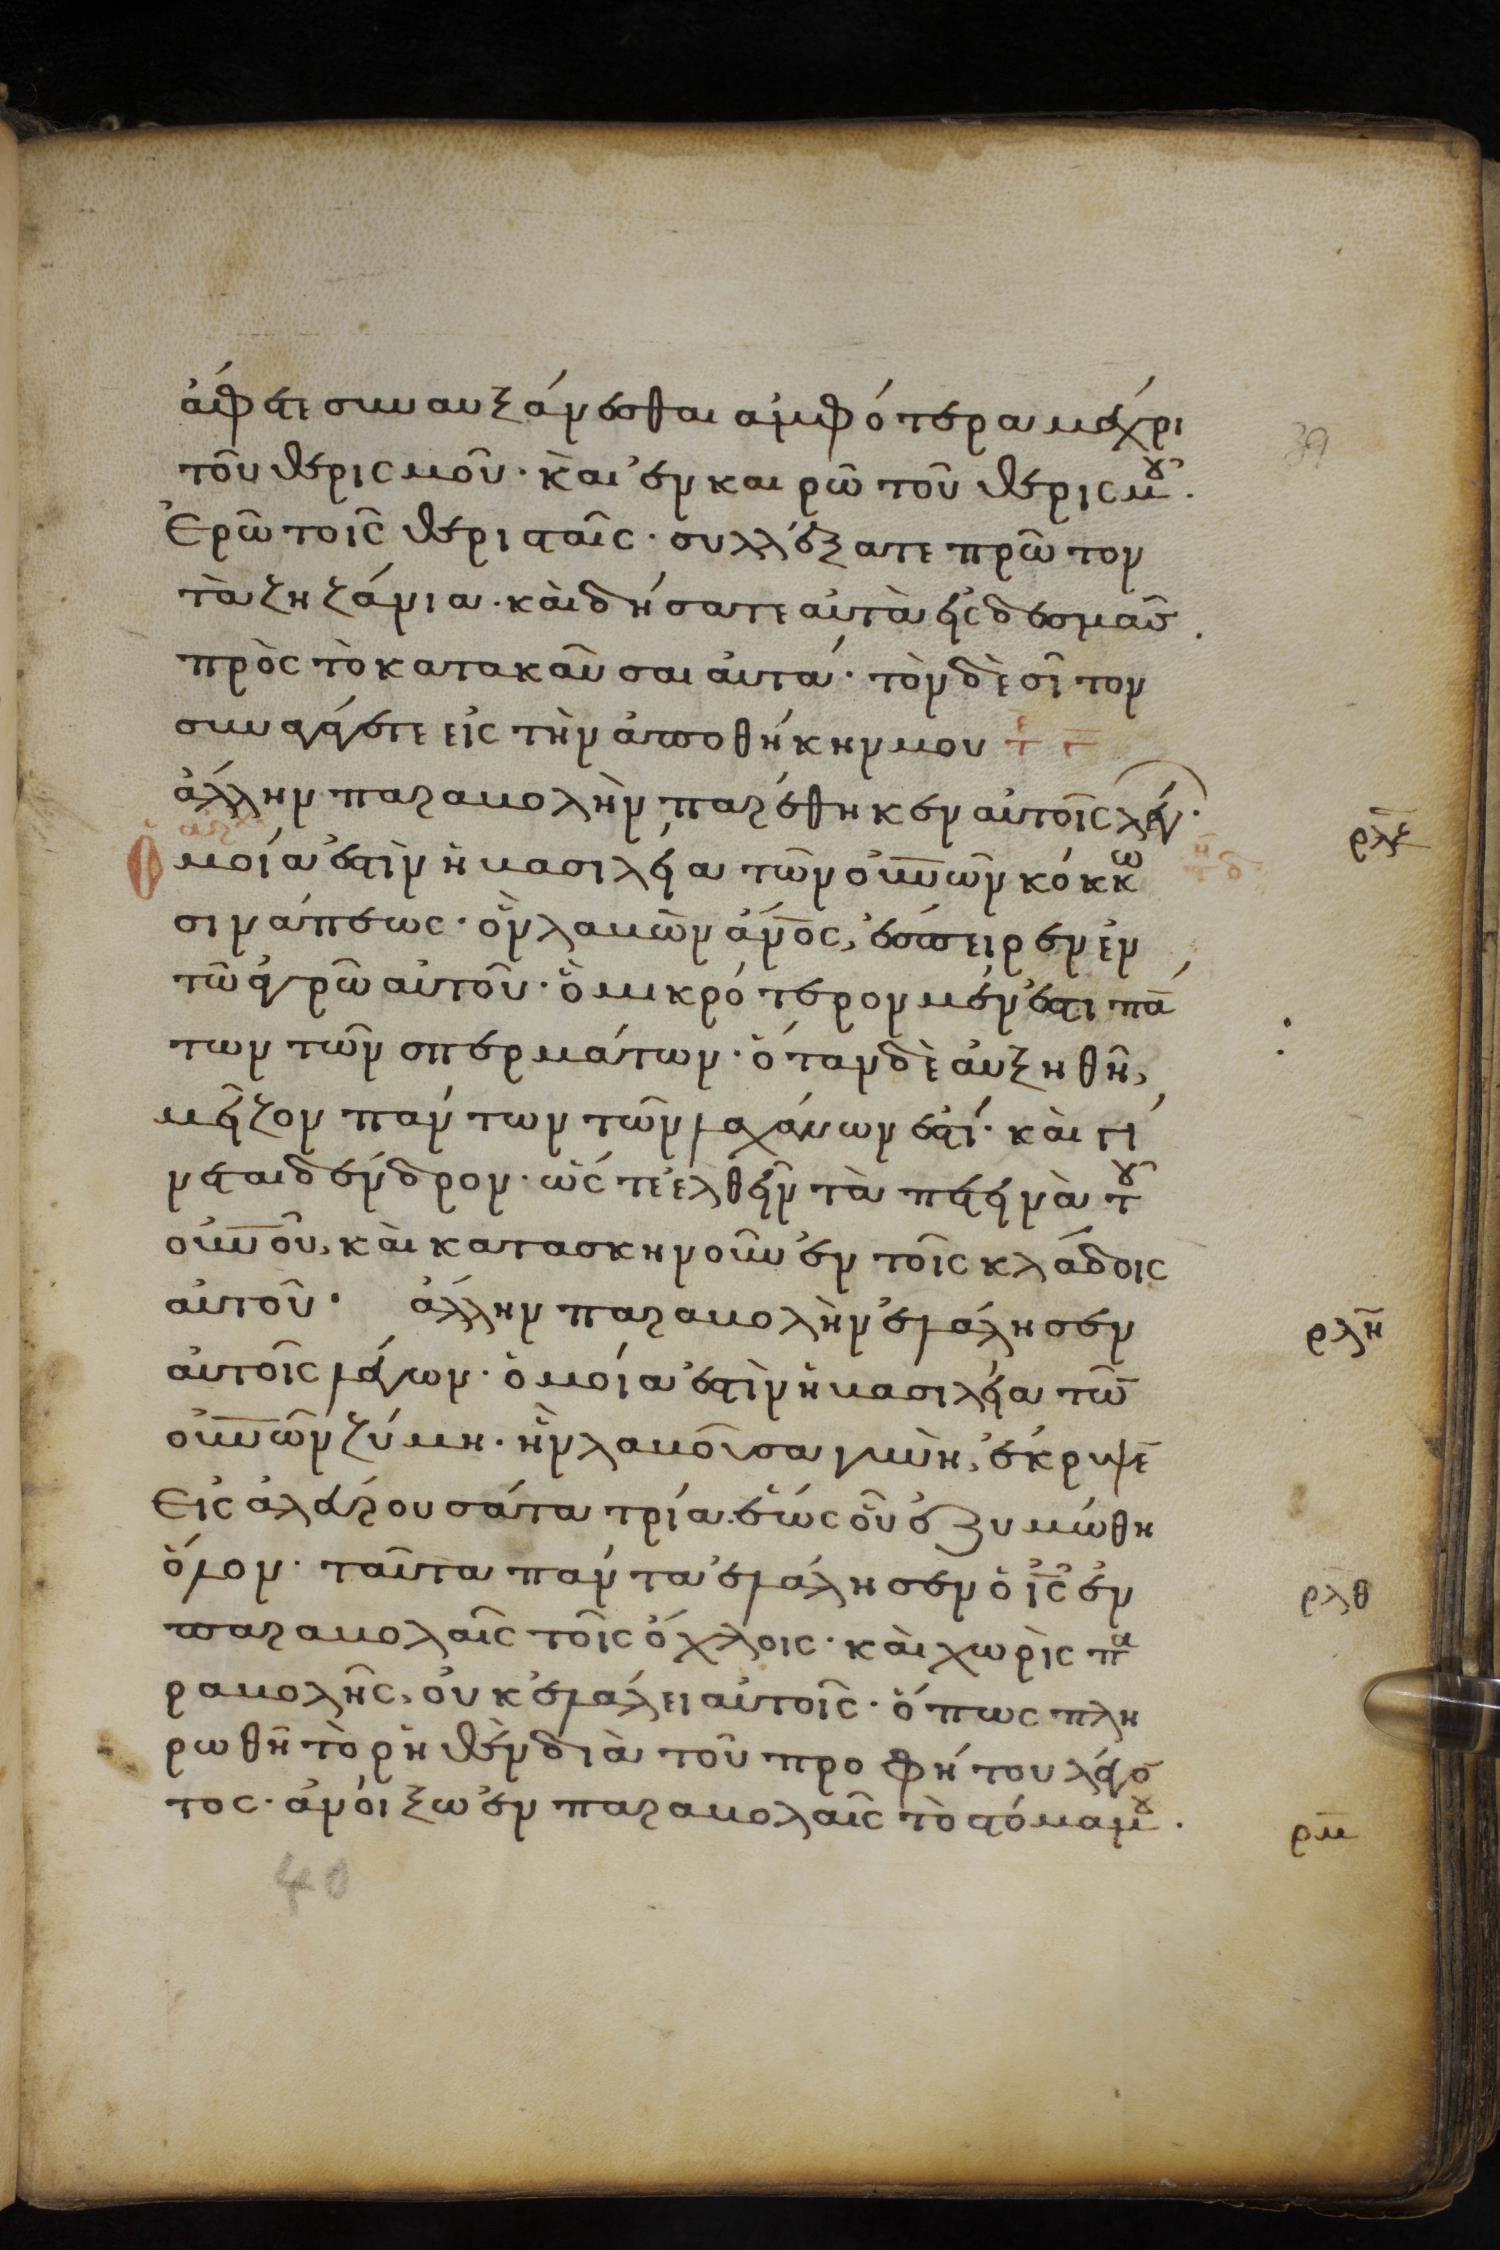 ἄφετε συναυξάνεσθαι ἀμφότερα μέχρι
τοῦ θερισμοῦ· καὶ ἐν καιρῶ τοῦ θερισμου·
ἐρῶ τοῖς θερισταῖς· συλλέξατε πρῶτον
τὰ ζηζάνια· καὶ δήσατε αὐτὰ εἰς δεσμὰς
πρὸς τὸ κατακαῦσαι αὐτά· τὸν δὲ σῖτον
συναγάγετε εἰς τὴν ἀποθήκην μου
ἄλλην παραβολὴν παρέθηκεν αὐτοῖς λέγ·
Ὁμοία ἐστὶν ἡ βασιλεία τῶν οὐνῶν κόκκω
σινάπεως· ὃν λαβὼν ἄνος, ἔσπειρεν ἐν
τῶ ἀγρῶ αὐτοῦ· ὃ μικρότερον μέν ἐστι πά
των τῶν σπερμάτων· ὅταν δὲ αὐξηθῆ,
μεῖζον πάντων τῶν λαχάνων ἐστί· καὶ γί
νεται δένδρον· ὥστε ἐλθεῖν τὰ πετεινὰ τοῦ
οὐνοῦ, καὶ κατασκηνοῦν ἐν τοῖς κλάδοις
αὐτοῦ· ἄλλην παραβολὴν ἐλάλησεν
αὐτοῖς λέγων· ὁμοία ἐστὶν ἡ βασιλεία τῶ
οὐνῶν ζύμη· ἣν λαβοῦσα γυνὴ, ἔκρυψε
εἰς ἀλεύρου σάτα τρία. ἕως οὗ ἐζυμώθη
ὅλον· ταῦτα πάντα ἐλάλησεν ὁ ις ἐν
παραβολαῖς τοῖς ὄχλοις· καὶ χωρὶς πα
ραβολῆς, οὐκ ἐλάλει αὐτοῖς· ὅπως πλη
ρωθῆ τὸ ρηθὲν διὰ τοῦ προφήτου λέγο
τος· ἀνοίξω ἐν παραβολαῖς τὸ στόμα μου·
ρλη
ρλθ
ρμ
40